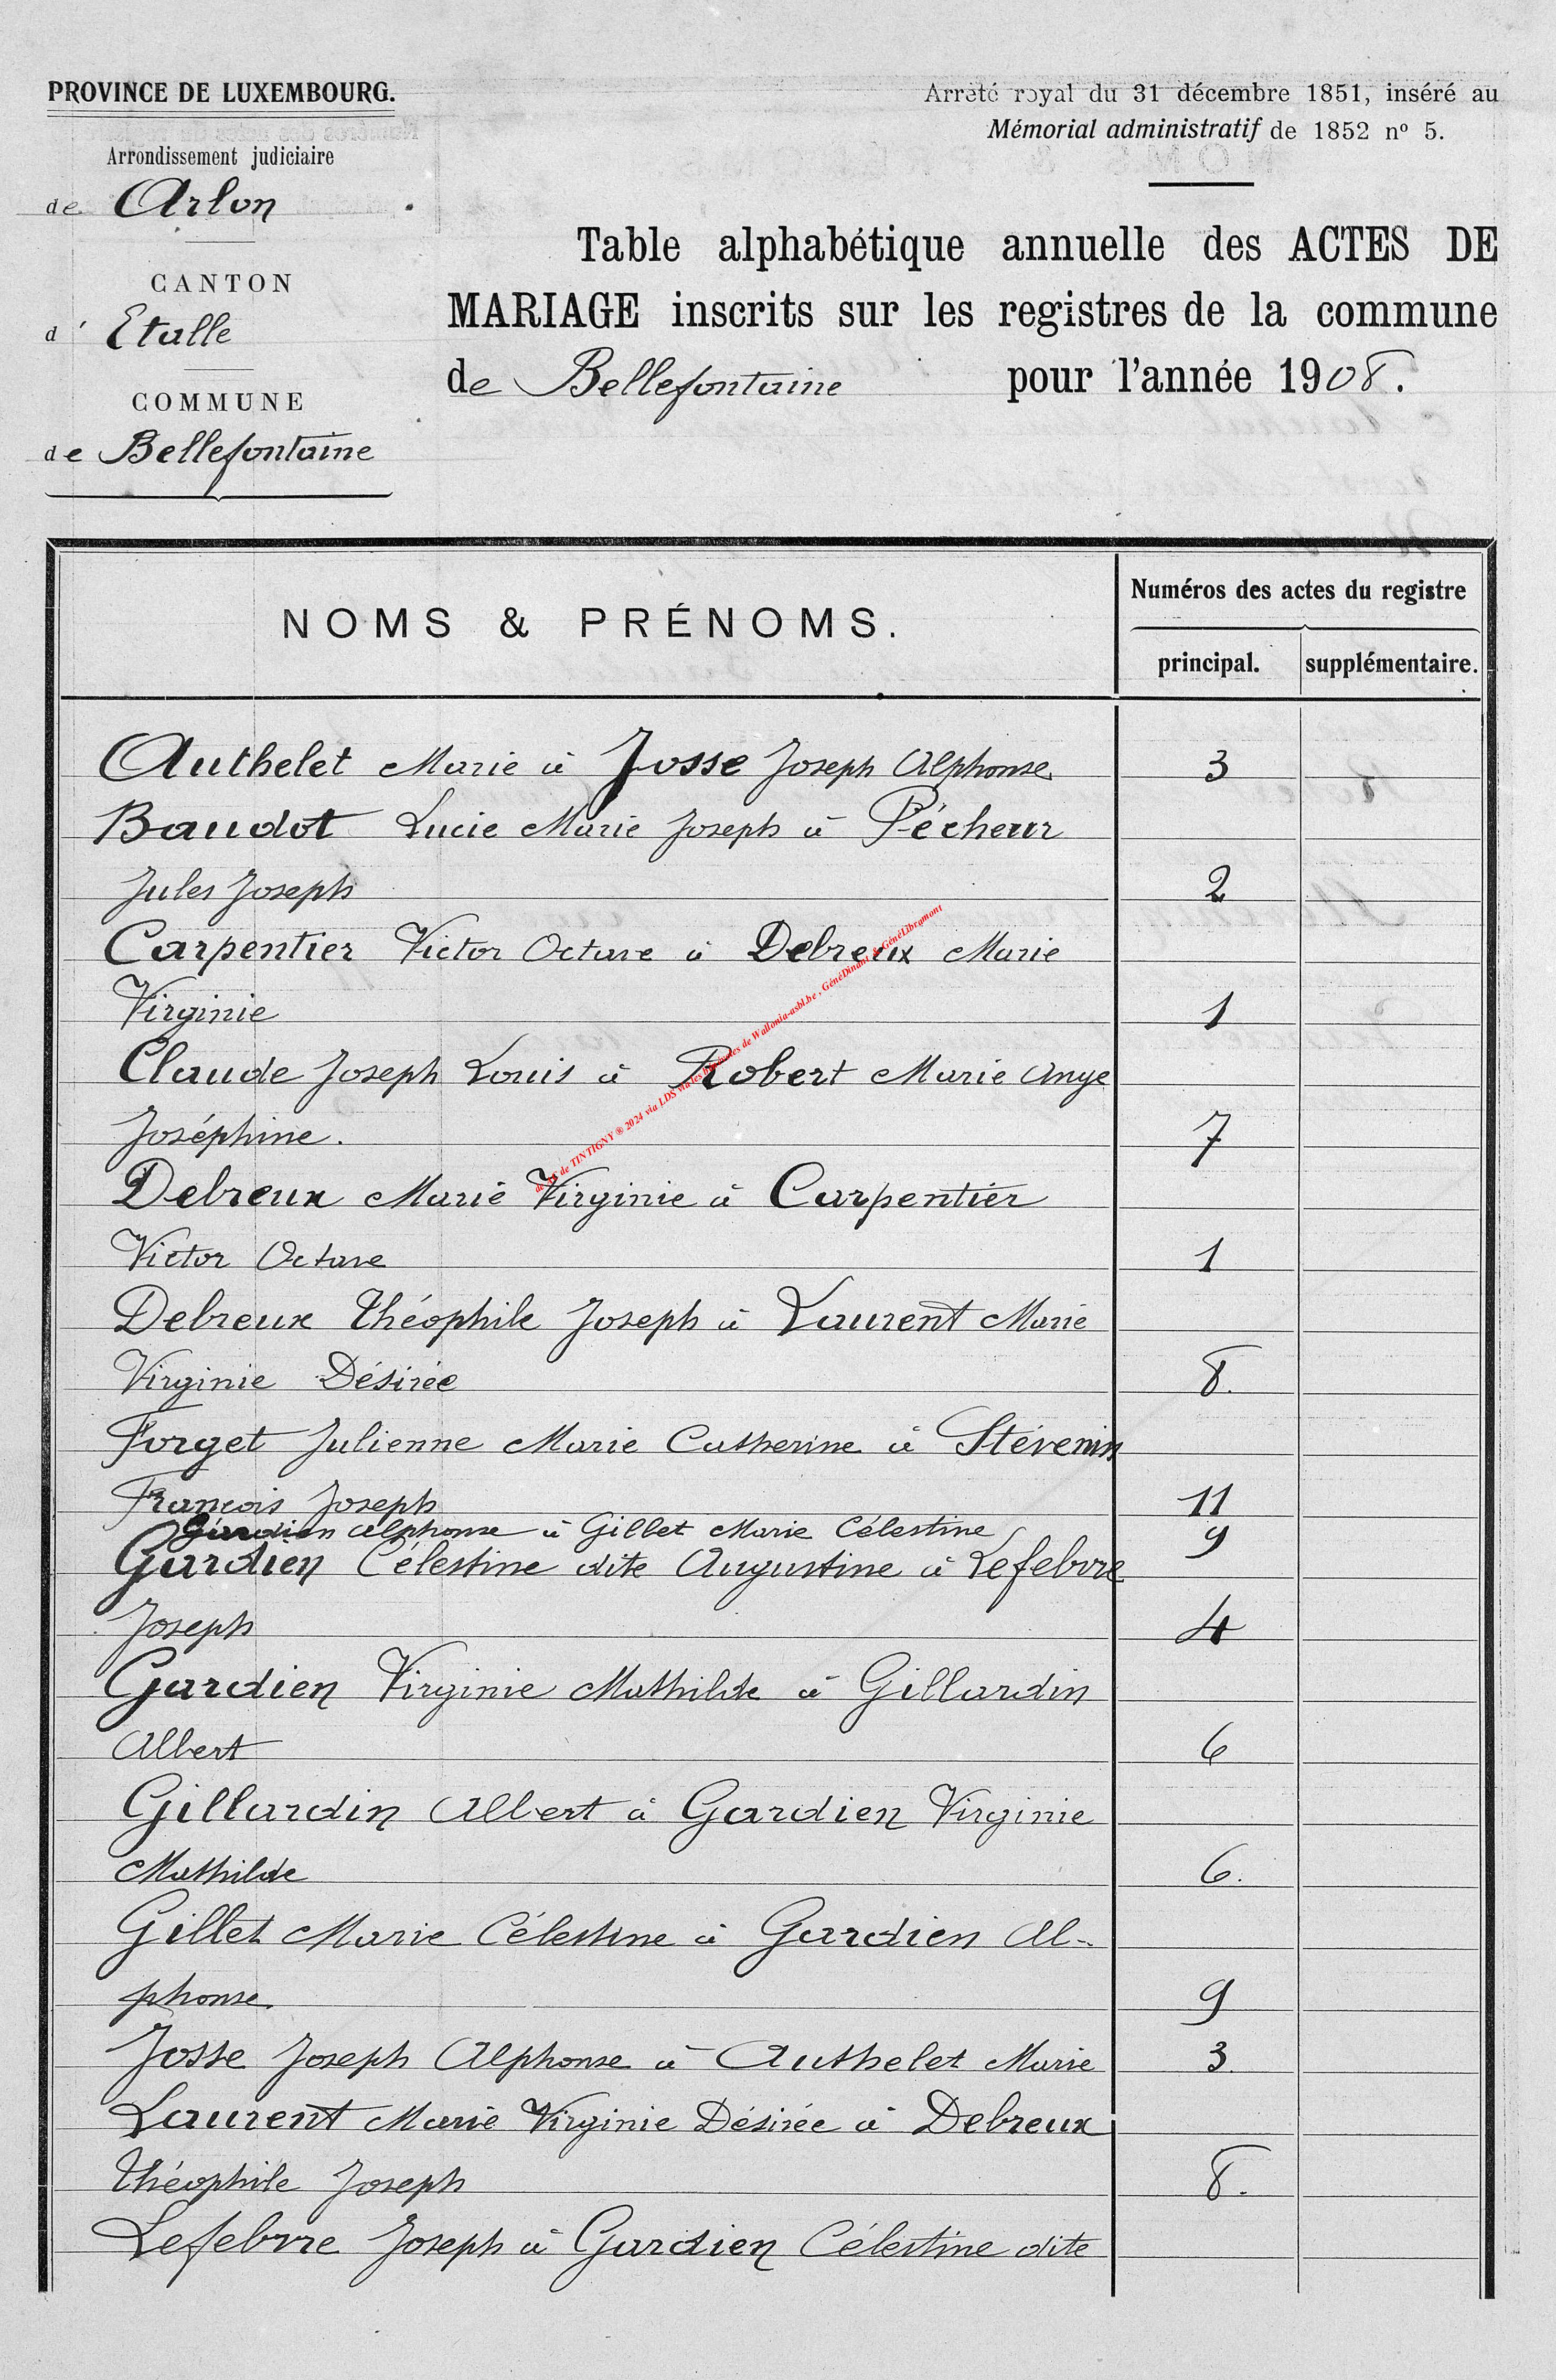 PROVINCE DE LUXEMBOURG.
Arrondissement judiciaire
de Arlon
CANTON
d' Etalle
COMMUNE
de Bellefontaine
Arrêté royal du 31 décembre 1851, inséré au
Mémorial administratif de 1852 nº 5.
Table alphabétique annuelle des ACTES DE
MARIAGE inscrits sur les registres de la commune
de Bellefontaine pour l'année 1908.
NOMS & PRÉNOMS.
Numéros des actes du registre
principal. supplémentaire.
Authelet Marie à Josse Joseph Alphonse 3
Baudot Lucie Marie Joseph à Pécheur
Jules Joseph 2
Carpentier Victor Octave à Debreux Marie
Virginie 1
Claude Joseph Louis à Robert Marie Ange
Joséphine. 7
Debreux Marie Virginie à Carpentier
Victor Octave 1
Debreux Théophile Joseph à Laurent Marie
Virginie Désirée 8.
Forget Julienne Marie Catherine à Stévenin
François Joseph 11
Gardien Alphonse à Gillet Marie Célestine 9
Gardien Célestine dite Augustine à Lefebvre
Joseph 4
Gardien Virginie Mathilde à Gillardin
Albert 6
Gillardin Albert à Gardien Virginie
Mathilde 6.
Gillet Marie Célestine à Gardien Al-
phonse. 9
Josse Joseph Alphonse à Authelet Marie 3
Laurent Marie Virginie Désirée à Debreux
Théophile Joseph 8.
Lefebvre Joseph à Gardien Célestine dite
de TINTIGNY ® 2024 via LDS via les de Wallonia-asbl.be, GénéDinant & GénéLibramont